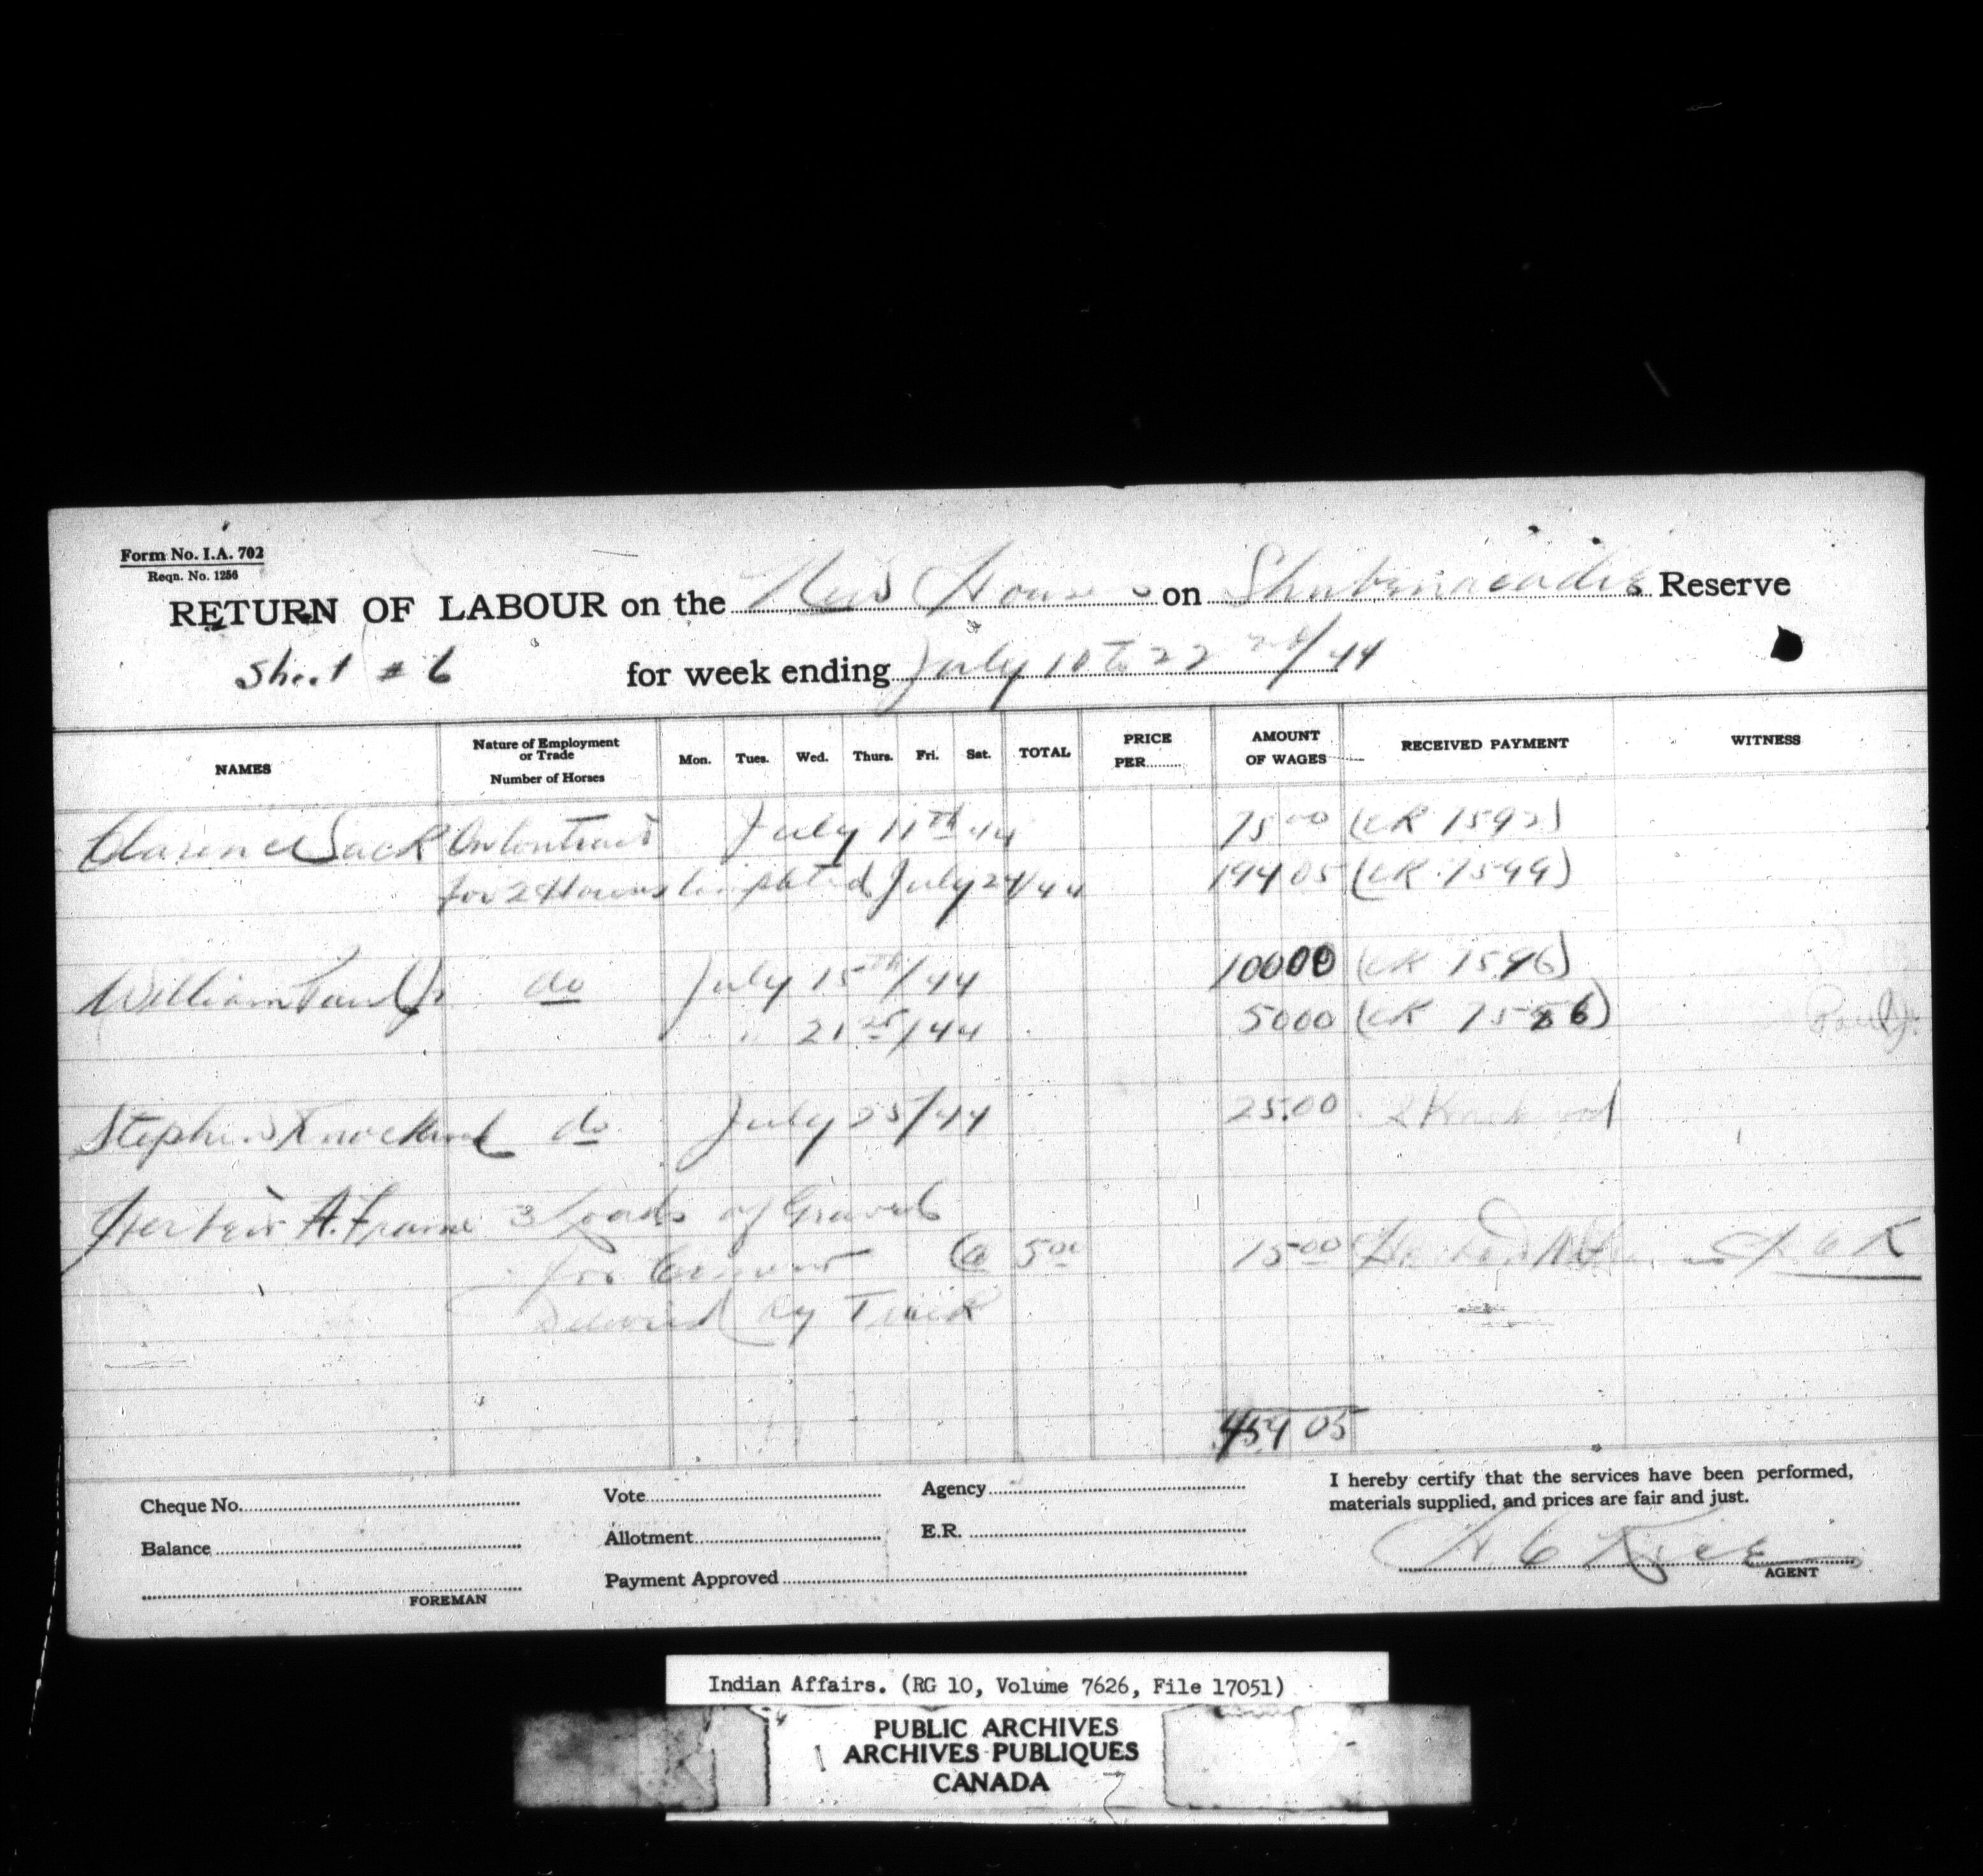 Form No. I.A. 702
Reqn. No. 1256
RETURN OF LABOUR on the New Houses on Shubenacadie Reserve
Sheet # 6 for week ending July 10 to 22nd/44
NAMES Nature of Employment or Trade Number of Horses Mon. Tues. Wed. Thurs. Fri. Sat. TOTAL PRICE PER........ AMOUNT OF WAGES RECEIVED PAYMENT WITNESS
Clarence Sack On Contract July 11th 44 75 00 (CK 1592)
for 2 Houses Completed July 24/44 194 05 (CK 1599)
William Paul Jr do July 15th/44 100 00 (CK 1596)
" 21st/44 50 00 (CK 1586)
Paul Jr.
Stephen Knockwood do July 25/44 25.00 S Knockwood
Herbert A. Frame 3 Loads of Gravel
for @ 5 00 15 00 Herbert H C R
Delivered by Truck
459 05
Cheque No. Vote Agency
Balance Allotment E.R.
Payment Approved
FOREMAN
I hereby certify that the services have been performed,
materials supplied, and prices are fair and just.
H C Rice
AGENT
Indian Affairs. (RG 10, Volume 7626, File 17051)
PUBLIC ARCHIVES
ARCHIVES PUBLIQUES
CANADA